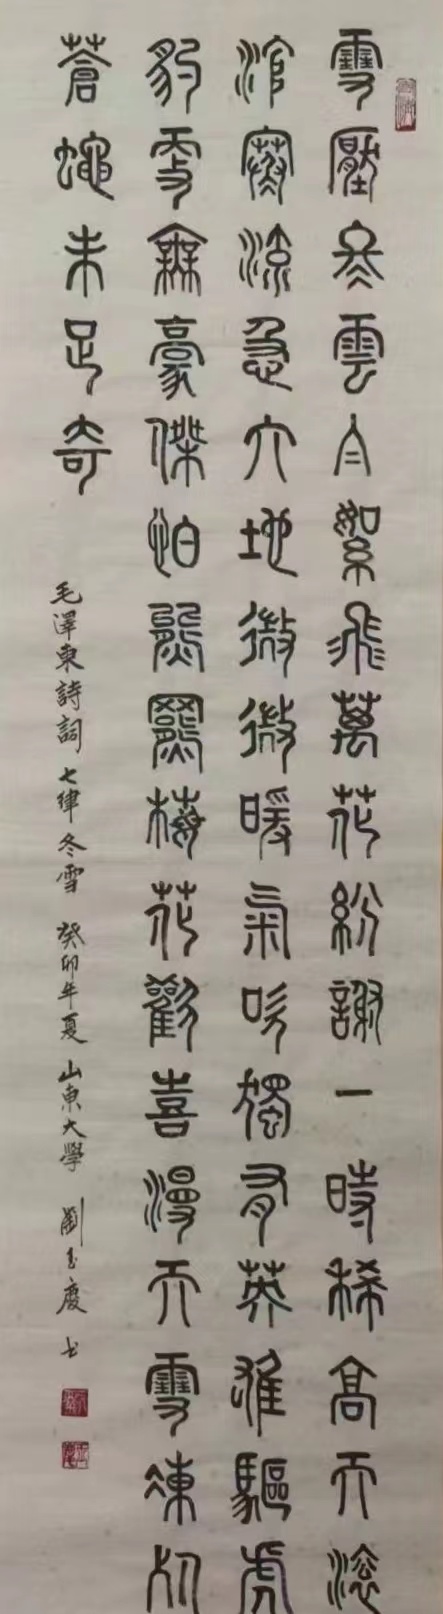 雪壓冬雲白絮飛萬花紛謝一時稀高天滾
滾寒流急大地微微暖氣吹獨有英雄驅虎
豹更無豪傑怕熊羆梅花歡喜漫天雪凍死
蒼蠅未足奇
毛澤東詩詞 七律冬雪 癸卯年夏 山東大學 劉玉慶书